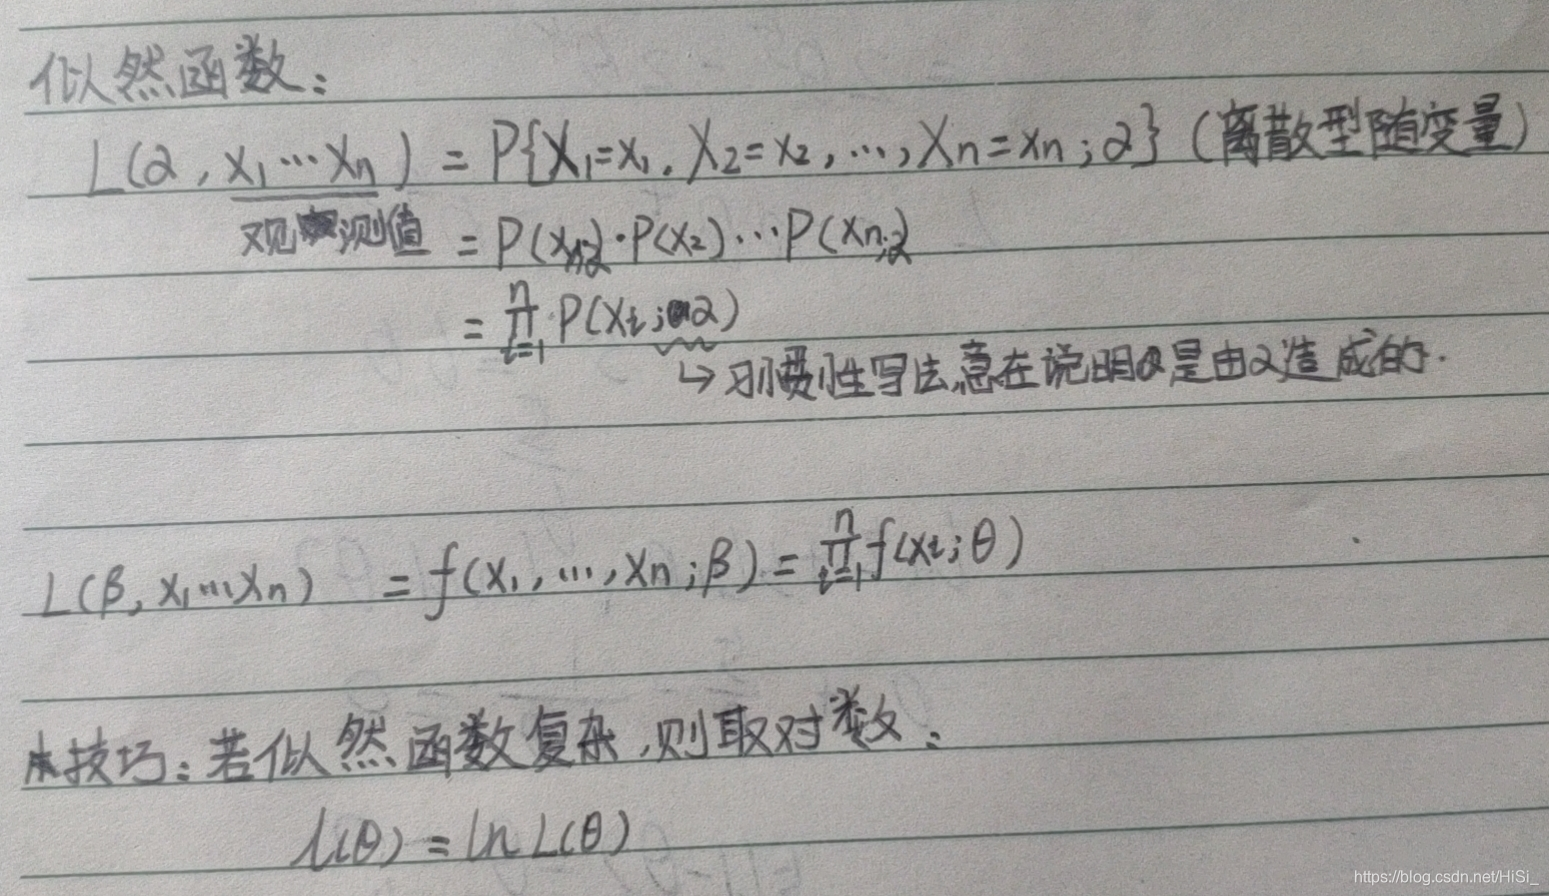 似然函数:
L(α, x₁…xₙ) = P{X₁=x₁, X₂=x₂, …, Xₙ=xₙ;α} (离散型随变量)
观测值 = P(x₁;α)·P(x₂)…P(xₙ;α
= ∏ⁿᵢ₌₁ P(xᵢ;α)
↳ 习惯性写法,意在说明 是由α造成的.
L(β, x₁…xₙ) = f(x₁, …, xₙ;β) = ∏ⁿᵢ₌₁ f(xᵢ;θ)
技巧:若似然函数复杂,则取对数:
l(θ) = ln L(θ)
https://blog.csdn.net/HiSi_